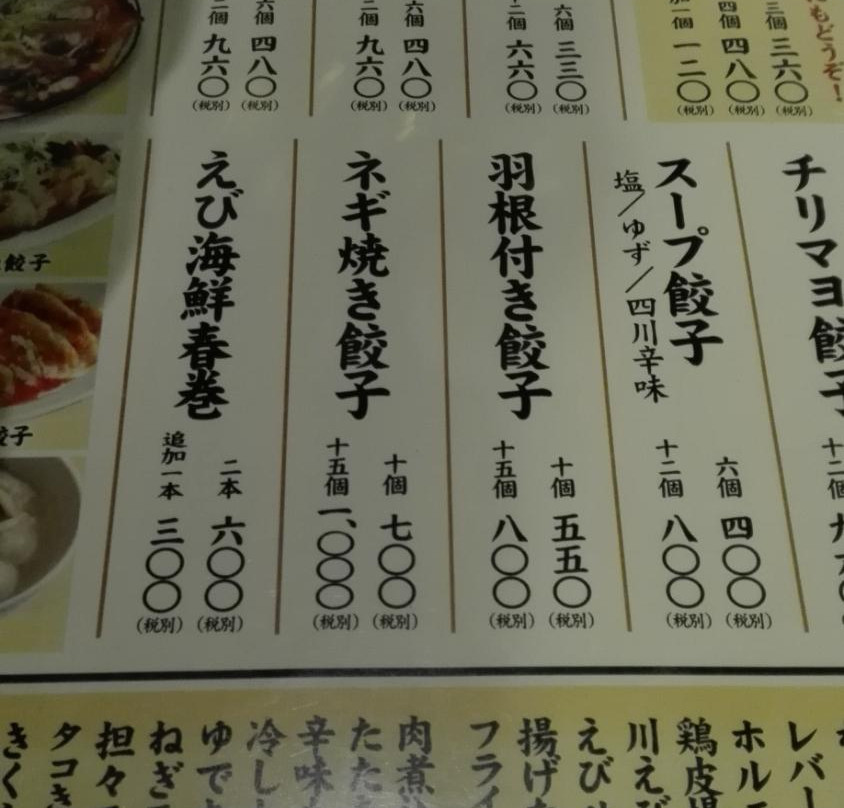 もどうぞ!
三個 三六〇(税別)
四個 四八〇(税別)
一個 一二〇(税別)
六個 三三〇(税別)
六六〇(税別)
六個 四八〇(税別)
九六〇(税別)
六個 四八〇(税別)
九六〇(税別)
チリマヨ餃子
スープ餃子
塩/ゆず/四川辛味
六個 四〇〇(税別)
十二個 八〇〇(税別)
羽根付き餃子
十個 五五〇(税別)
十五個 八〇〇(税別)
ネギ焼き餃子
十個 七〇〇(税別)
十五個 一、〇〇〇(税別)
えび海鮮春巻
二本 六〇〇(税別)
追加一本 三〇〇(税別)
餃子
餃子
レバー
ホル
鶏皮
川えび
えび
揚げ
フライ
肉煮
たた
辛味
冷し
ゆで
ねぎ
担々
タコ
きく